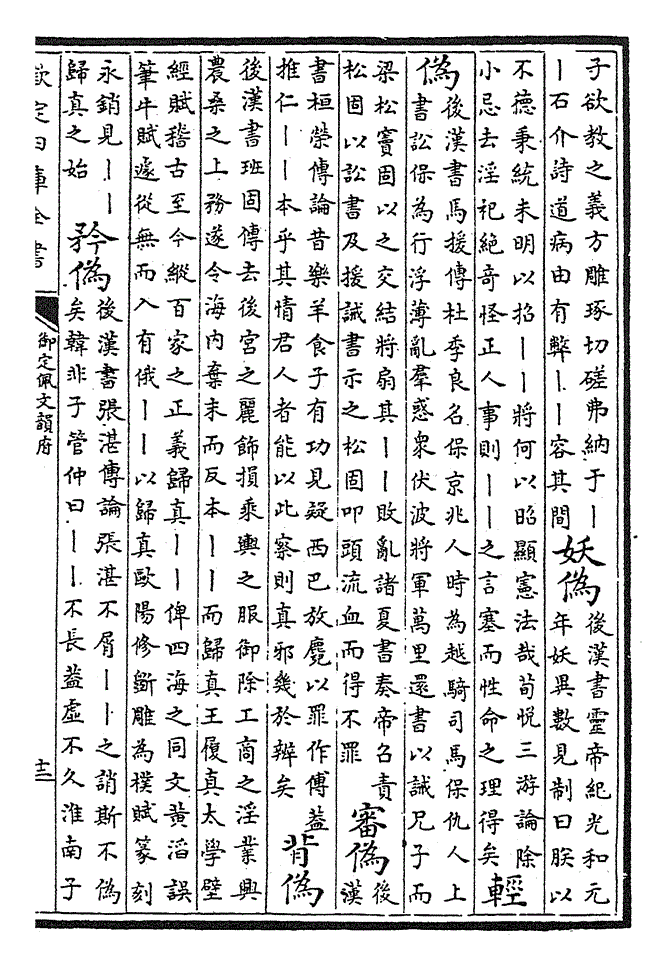 子欲教之義方雕琢切磋弗納于丨
丨石介詩道病由有弊丨丨容其間
妖偽
後漢書靈帝紀光和元
年妖異數見制曰朕以
不德秉統未明以招丨丨將何以昭顯憲法哉荀悅三游論除
小忌去淫祀絕奇怪正人事則丨丨之言塞而性命之理得矣
輕
偽
後漢書馬援傳杜季良名保京兆人時為越騎司馬保仇人上
書訟保為行浮薄亂羣惑衆伏波將軍萬里還書以誡兄子而
梁松竇固以之交結將扇其丨丨敗亂諸夏書奏帝召責
松固以訟書及援誡書示之松固叩頭流血而得不罪
審偽
後
漢
書桓榮傳論昔樂羊食子有功見疑西巴放麑以罪作傅葢
推仁丨丨本乎其情君人者能以此察則真邪幾於辨矣
背偽
後漢書班固傳去後宮之麗飾損乘輿之服御除工商之淫業興
農桑之上務遂令海內棄末而反本丨丨而歸真王履真太學壁
經賦稽古至今縱百家之正義歸真丨丨俾四海之同文黄滔誤
筆牛賦遽從無而入有俄丨丨以歸真歐陽修斲雕為樸賦篆刻
永銷見丨丨
歸真之始
矜偽
後漢書張湛傳論張湛不屑丨丨之誚斯不偽
矣韓非子管仲曰丨丨不長葢虛不久淮南子
欽定四庫全書
御定佩文韻府
十三